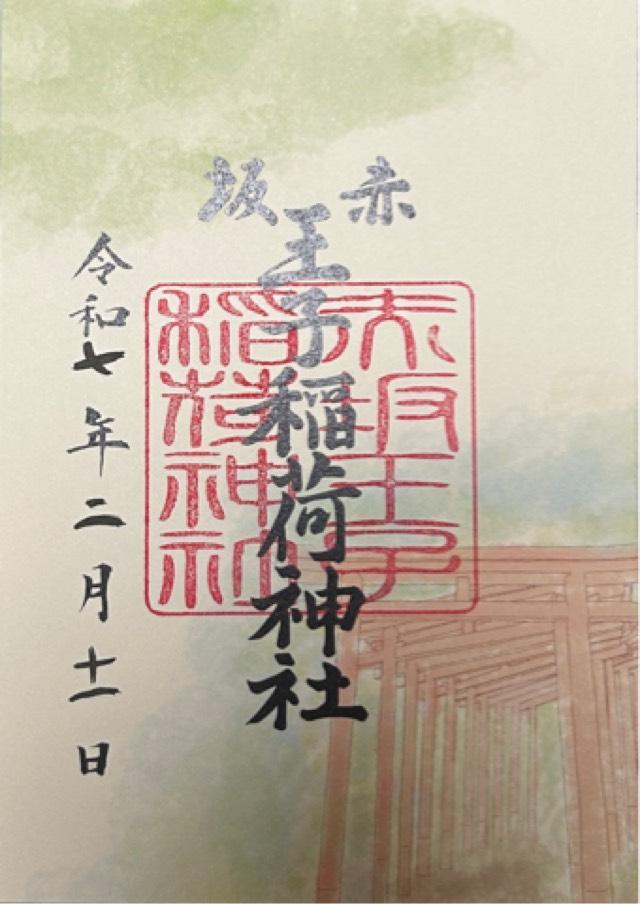 赤坂
王子稲荷神社
赤坂王子
稲荷神社
令和七年二月十一日